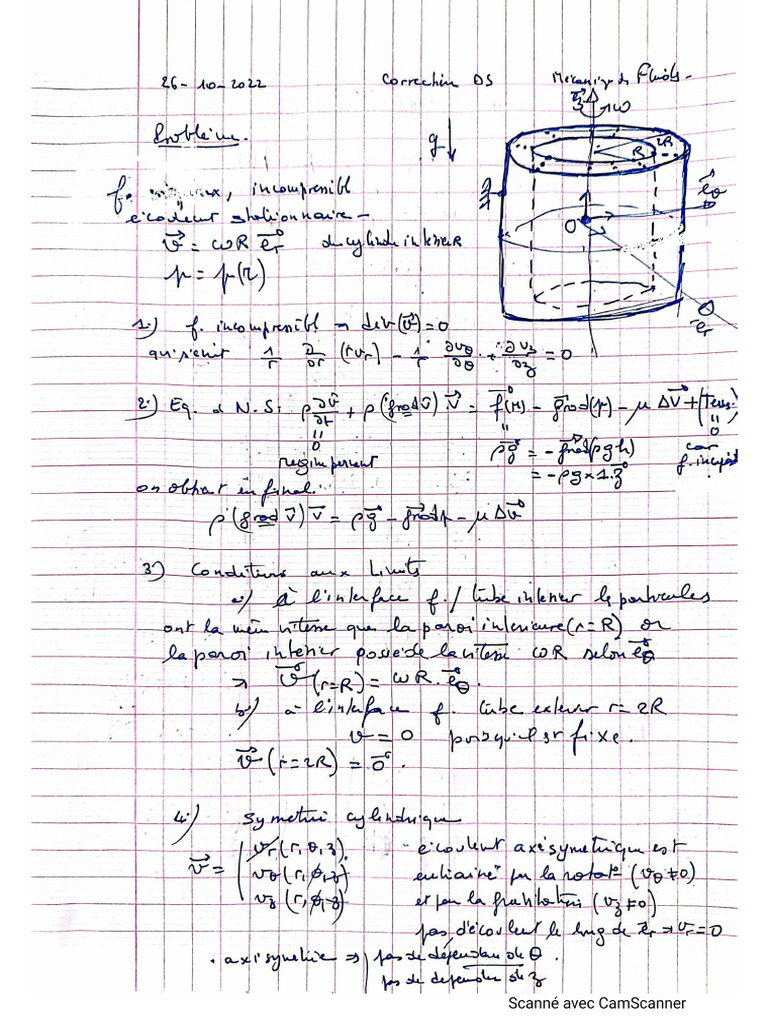 26-10-2022 Correction DS Mécanique des Fluides-
Problème.
g
z ω
R 2R
O
e_θ
e_r
f. visqueux, incompressible
écoulement stationnaire-
v⃗ = ωR e⃗_r du cylindre intérieur
p = p(r)
1.) f. incompressible → div(v⃗) = 0
qui s'écrit 1/r ∂/∂r (r v_r) - 1/r ∂v_θ/∂θ + ∂v_z/∂z = 0
2.) Eq. d N.S: ρ ∂v⃗/∂t + ρ (grad v⃗) v⃗ = f⃗(M) - grad(p) - μ Δv⃗ + (Terme)
" 0 " " 0
régime permanent ρg⃗ = -grad(ρgh) car
= -ρg×1.z⃗ f. incomp
on obtient en final.
ρ (grad v⃗) v⃗ = ρg⃗ - grad p - μ Δv⃗
3.) Conditions aux Limites
a/) à l'interface f./tube intérieur les particules
ont la même vitesse que la paroi intérieure (r=R) or
la paroi intérieur possède la vitesse ωR selon e⃗_θ
→ v⃗(r=R) = ωR. e⃗_θ.
b/) à l'interface f. tube extérieur r=2R
v = 0 puisqu'il est fixe.
v⃗(r=2R) = 0⃗.
4.) Symétrie cylindrique
v⃗ = | v_r(r, θ, z) écoulement axisymétrique est
v_θ(r, θ, z) entrainé par la rotat° (v_θ ≠ 0)
v_z(r, θ, z) et par la gravitation (v_z ≠ 0)
pas d'écoulement le long de e⃗_r → v_r = 0
. axisymétrie ⇒ | pas de dépendance de θ.
pas de dépendance de z
Scanné avec CamScanner